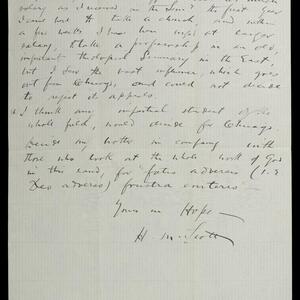 salary as I received in the
I came here to take a church, and within
a few weeks I was urged at larger
salary, to take a professorship in an old,
important theological Seminary in the East,
but I saw the vast influence, which goes
out from Chicago, and could not decide
to reject its appeals.
I think any impartial student of the
whole field, would decide for Chicago.
in company with
those who look at the whole work of God
in this land, for "fatis adversis (i.e
Deo adverso) frustra
Yours in Hope—
H. M. Scott